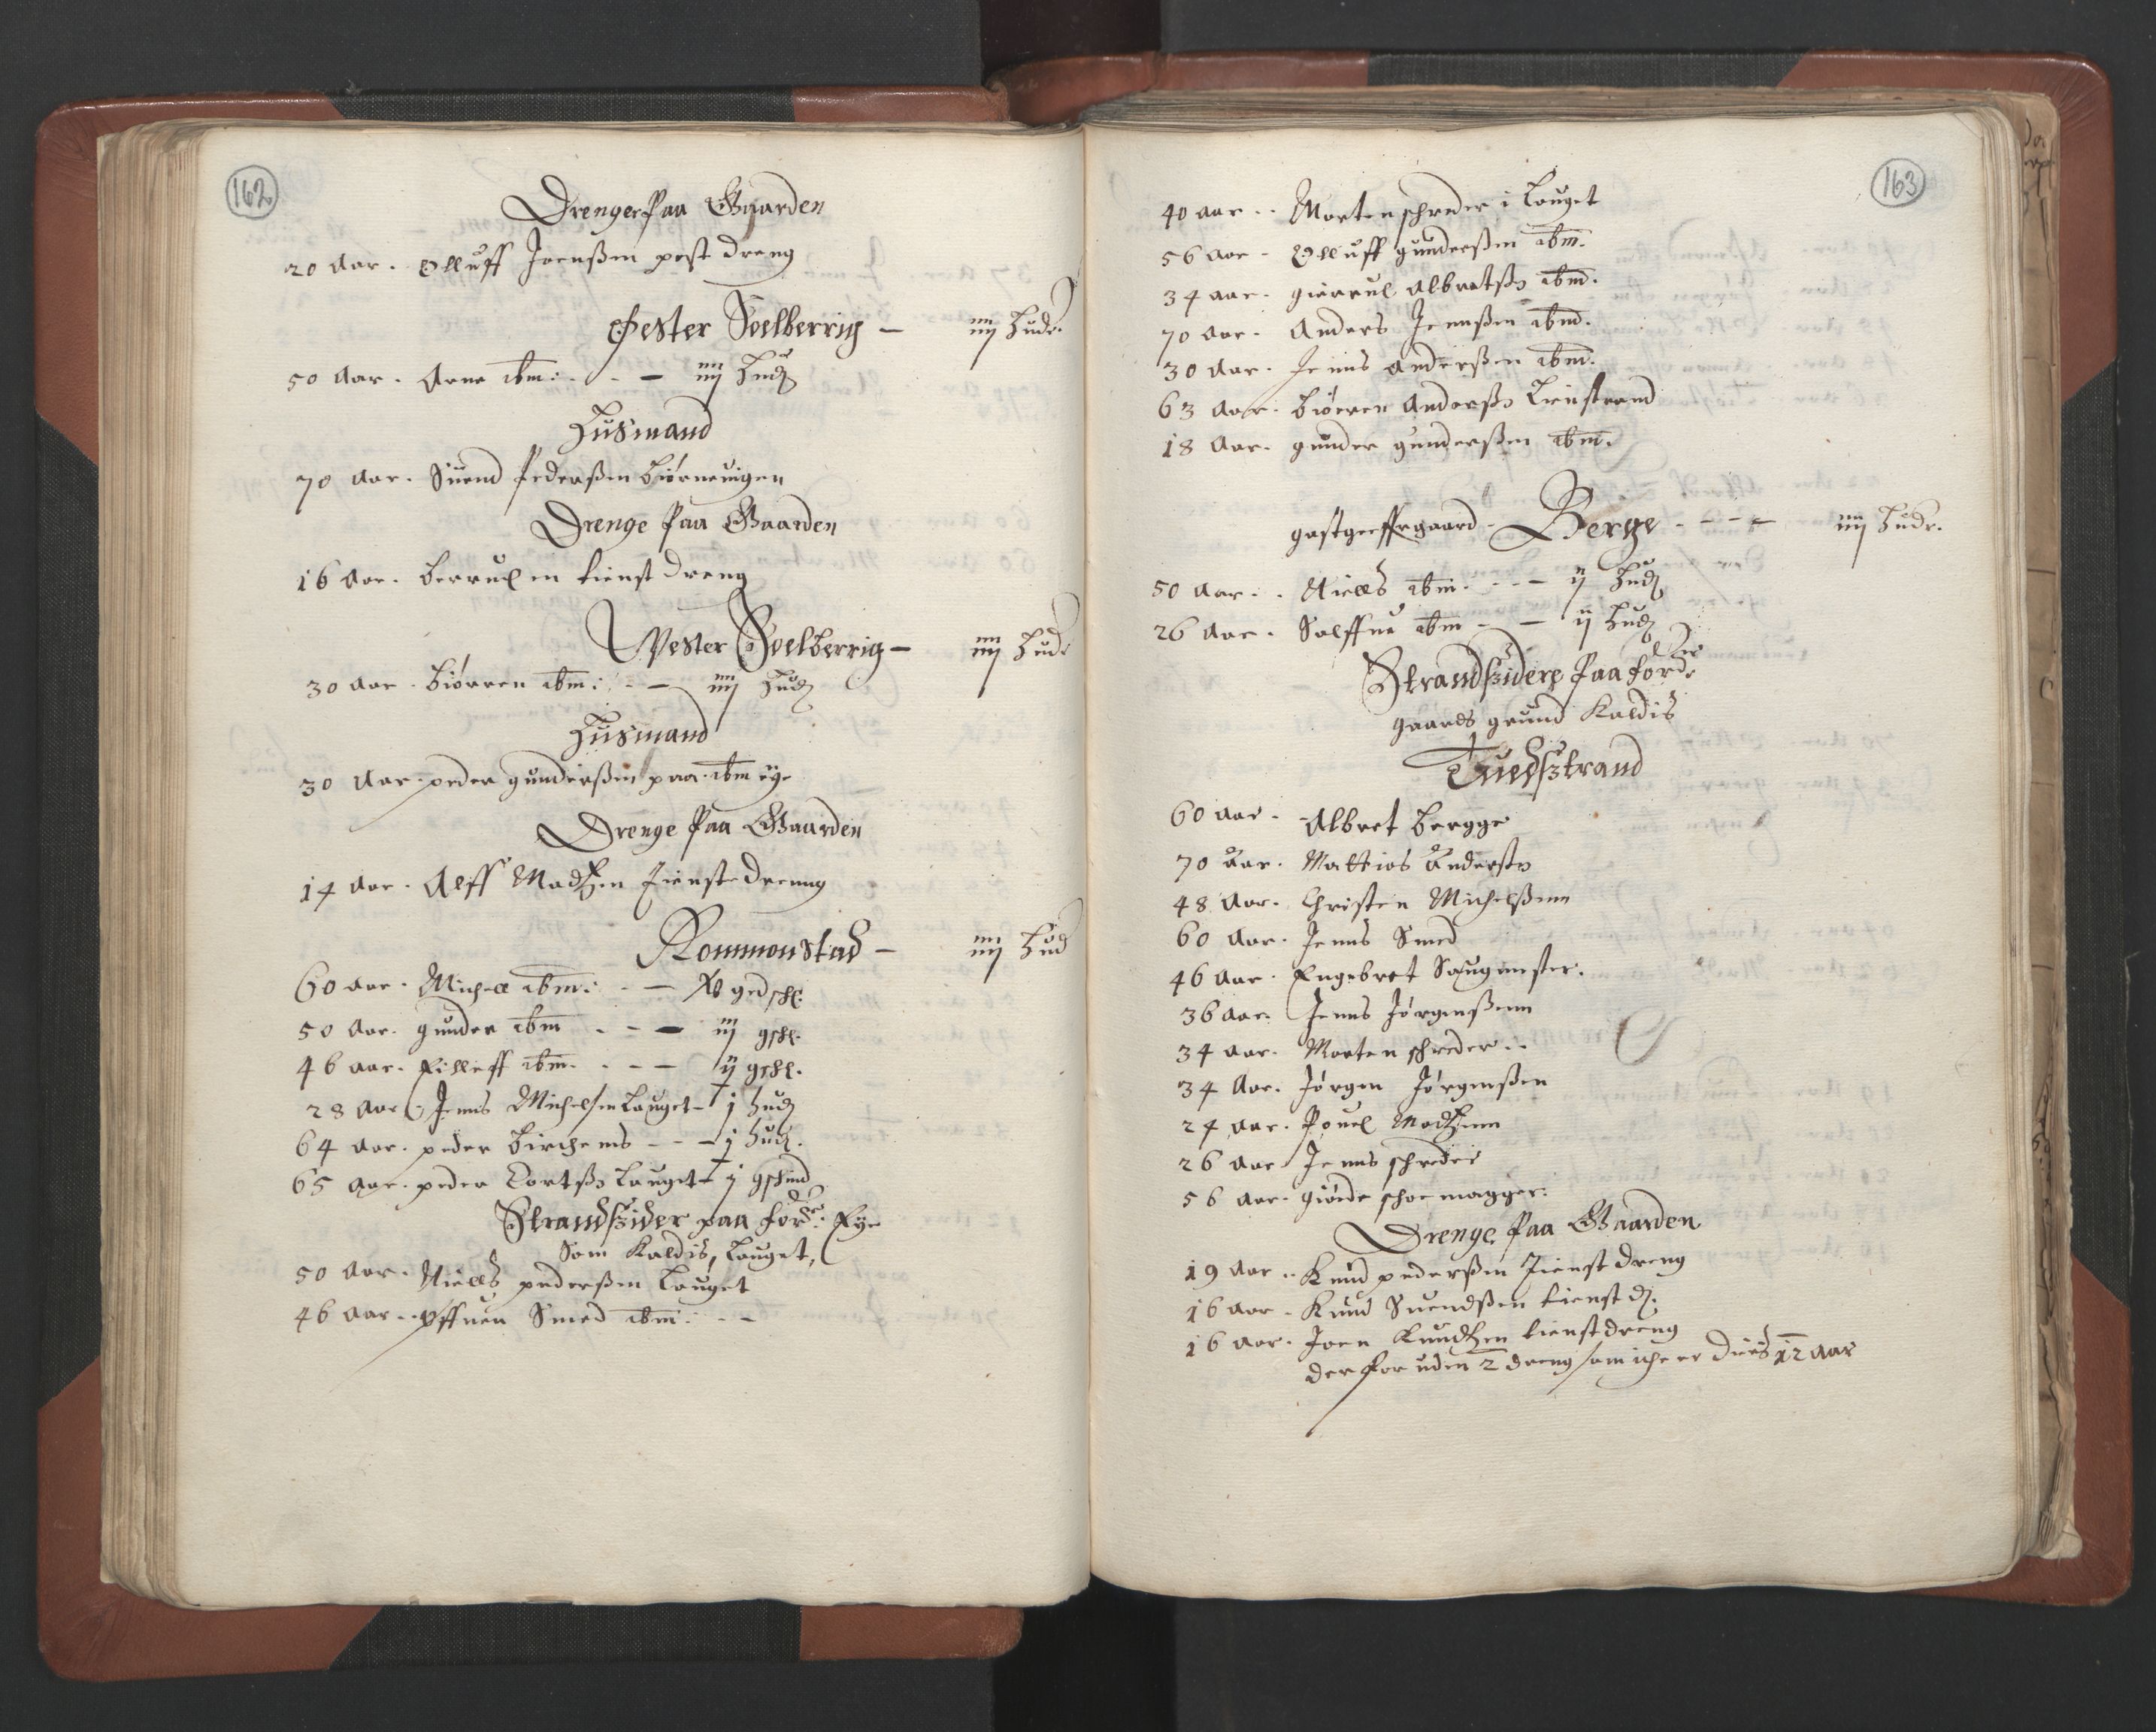 162
Drenger Paa Gaarden
20 Aar. Olluff Joenßen post dreng
Øester Soelberrig – iiij Hude.
50 Aar. Arne ibm: . . – iiij Hud
Husmand
70 Aar. Suend Pederßen Biørneuigen
Drenge Paa Gaarden
16 Aar. Berruel en tienst dreng
Wester Soelberrig – iiij Hud
30 Aar. Biørren ibm: . – iiij Hud
Husmand
30 Aar. peder gunderßen paa ibm eye
Drenge Paa Gaarden
14 Aar. Alff Madtzen tienste dreng
Rommonstad – iiij Hud
60 aar. Michel ibm: . – gedschl.
50 Aar. gunder ibm . . – iij gschl.
46 aar. Eilleff ibm. . . – ij gschl.
28 Aar Jenns Michelsen Lauget – j hud
64 Aar. peder Birchenes – – j hud.
65 Aar. peder Lauget – j gschind
Strandszider paa for: Eye
Som Kaldis, Lauget,
50 Aar. Niells pederßen Lauget
46 Aar. Effuen Smed ibm: . –
163
40 aar . . Morten schreder i Lauget
56 Aar – Olluff gunderßen ibm.
34 aar. gierruel Albretß ibm.
70 Aar. Anders Jennßen ibm.
30 Aar. Jenns Anderßen ibm.
63 Aar. Biørren Anderß Lienstrand
18 Aar. gunder gunderßen ibm.
gastgeffergaard – Berge – – – – iiij Hude.
50 Aar . . Niells ibm. – – – ij Hud
26 Aar . Salffue ibm – – ij Hud
Strandszidere Paa forde
gaards grund Kaldis
Tuedsztrand
60 aar – Albret Bergge
70 Aar. Mattias Anderß
48 Aar. Christen Michelßenn
60 Aar. Jenns Smed
46 Aar. Engebret Saugmester.
36 aar. Jenns Jørgenßenn
34 aar. Morten schreder . –
34 Aar. Jørgen Jørgenßen
24 Aar. Pouel Madtzenn
26 Aar Jenns schreder
56 Aar. giørde schoemagger.
Drenge Paa Gaarden
19 Aar . . Knud pederßen tienst dreng
16 Aar. Knud Suendßen tienst d.
16 Aar. Joen Knudtzen tienst dreng
der for uden 2 dreng som iche er Diers 12 aar